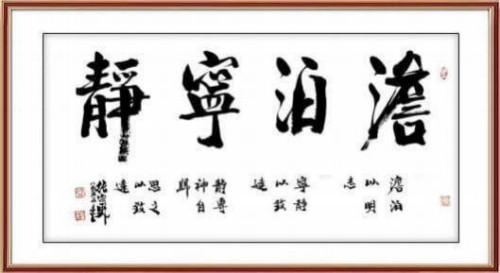 澹泊寧靜
澹泊
以明
志
寧静
以致
遠
静專
神自
歸
思之
以致